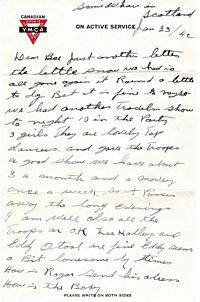 CANADIAN
YMCA
ON ACTIVE SERVICE
Somewhere in
Scotland
Jan 23/42
Dear Bee Just another letter
the little snow we had is
all gone again it Rained a little
to day But it is fine to night
we had another Traveln show
to night 10 in the Party
3 girls They are lovely Tap
dancers, and gave the Troops
a good show we have about
3 a month and a movey
once a week so it Passes
away the long Evenings
I am well also all the
Troops are O.K. Lee Hadley and
Eddy O Tool are fine Eddy seems
a Bit lonesome by times
How is Roger send his adress
How is the Baby
PLEASE WRITE ON BOTH SIDES